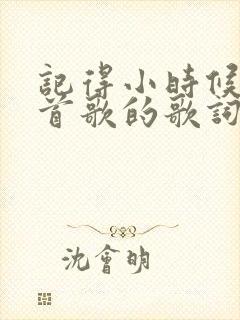 記得小時候
首歌的歌詞
沈會明